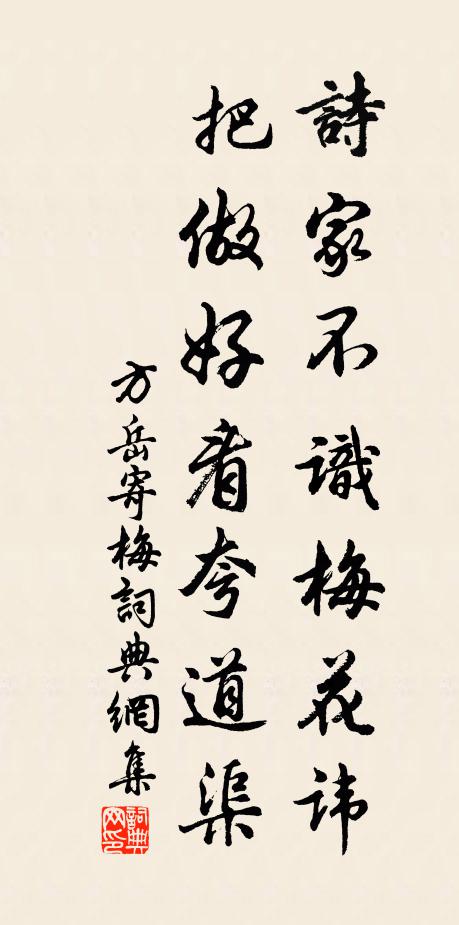 詩家不識梅花諱
把做好看夸道渠
方岳寄梅詞典網集
詞典网印